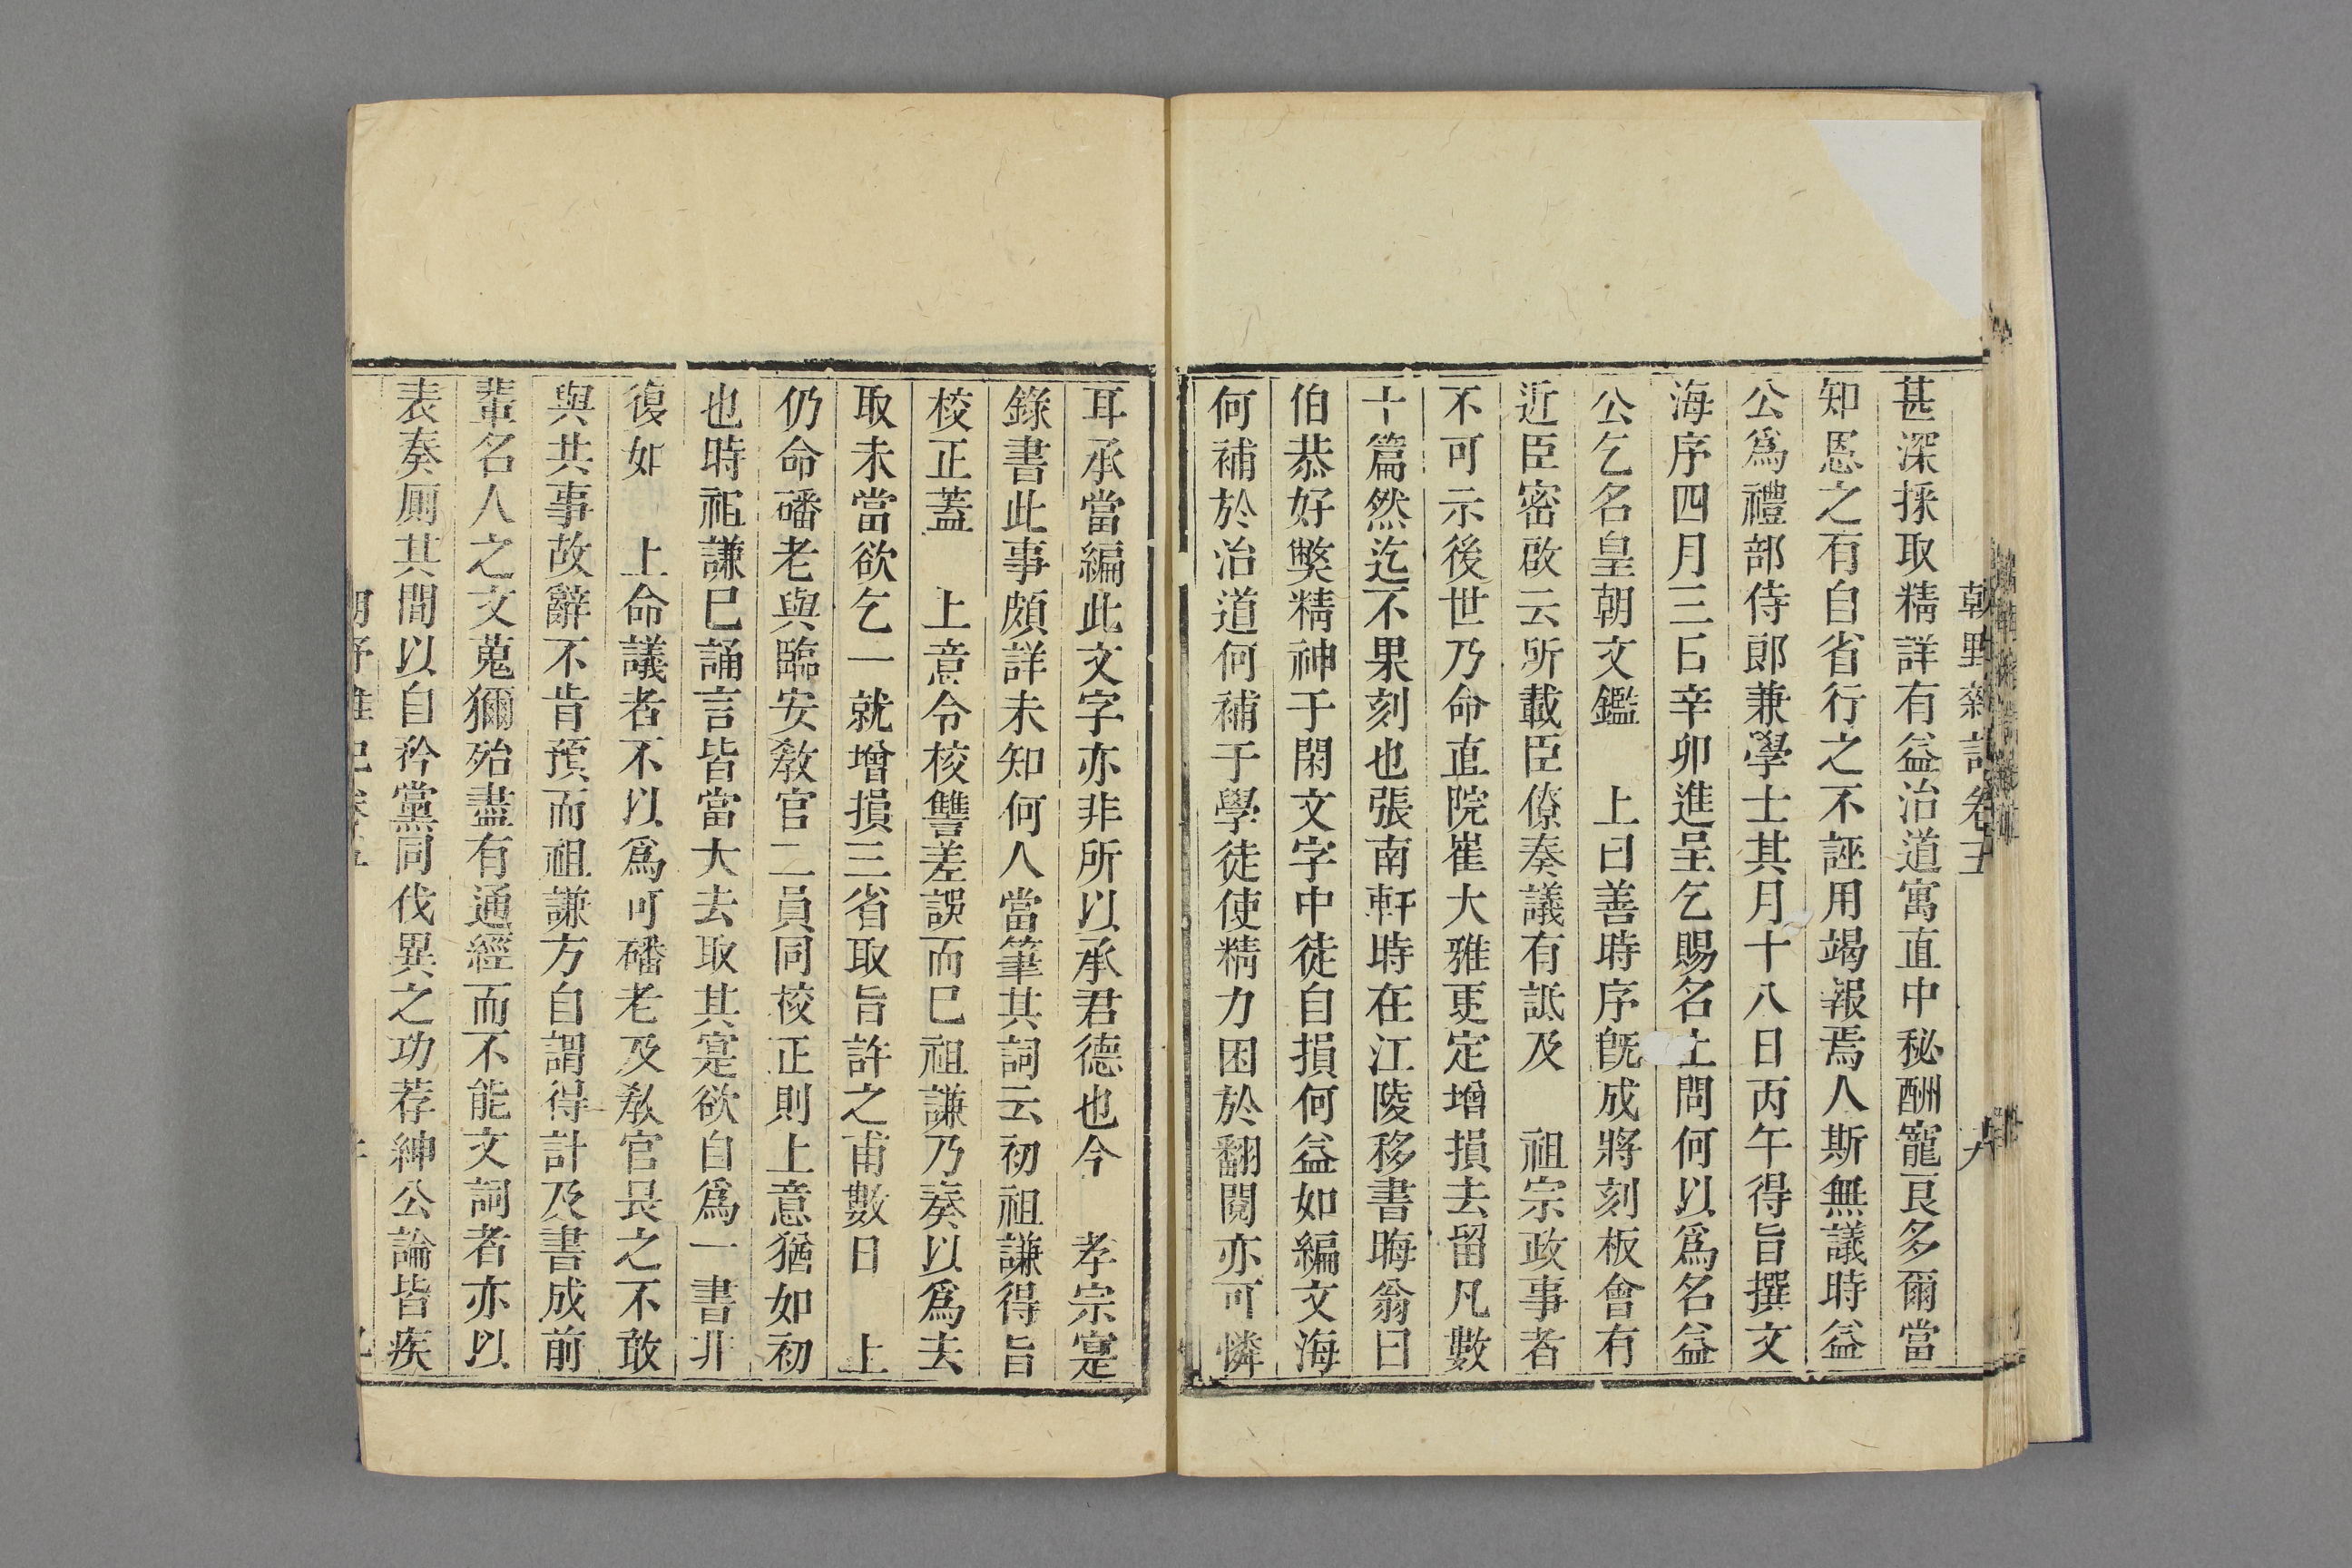 朝野雜記卷五 九
甚深採取精詳有益治道寓直中秘酬寵良多爾當
知恩之有自省行之不誣用竭報焉人斯無議時益
公爲禮部侍郎兼學士其月十八日丙午得旨撰文
海序四月三日辛卯進呈乞賜名上問何以爲名益
公乞名皇朝文鑑 上曰善時序旣成將刻板會有
近臣密啟云所載臣僚奏議有詆及 祖宗政事者
不可示後世乃命直院崔大雅更定增損去留凡數
十篇然迄不果刻也張南軒時在江陵移書晦翁曰
伯恭好獘精神于閑文字中徒自損何益如編文海
何補於治道何補于學徒使精力困於翻閱亦可憐
耳承當編此文字亦非所以承君德也今 孝宗寔
錄書此事頗詳未知何人當筆其詞云初祖謙得旨
校正蓋 上意令校讐差誤而已祖謙乃奏以爲去
取未當欲乞一就增損三省取旨許之甫數日 上
仍命磻老與臨安教官二員同校正則上意猶如初
也時祖謙已誦言皆當大去取其寔欲自爲一書非
復如 上命議者不以爲可磻老及教官畏之不敢
與共事故辭不肯預而祖謙方自謂得計及書成前
輩名人之文蒐獮殆盡有通經而不能文詞者亦以
表奏厠其間以自矜黨同伐異之功荐紳公論皆疾